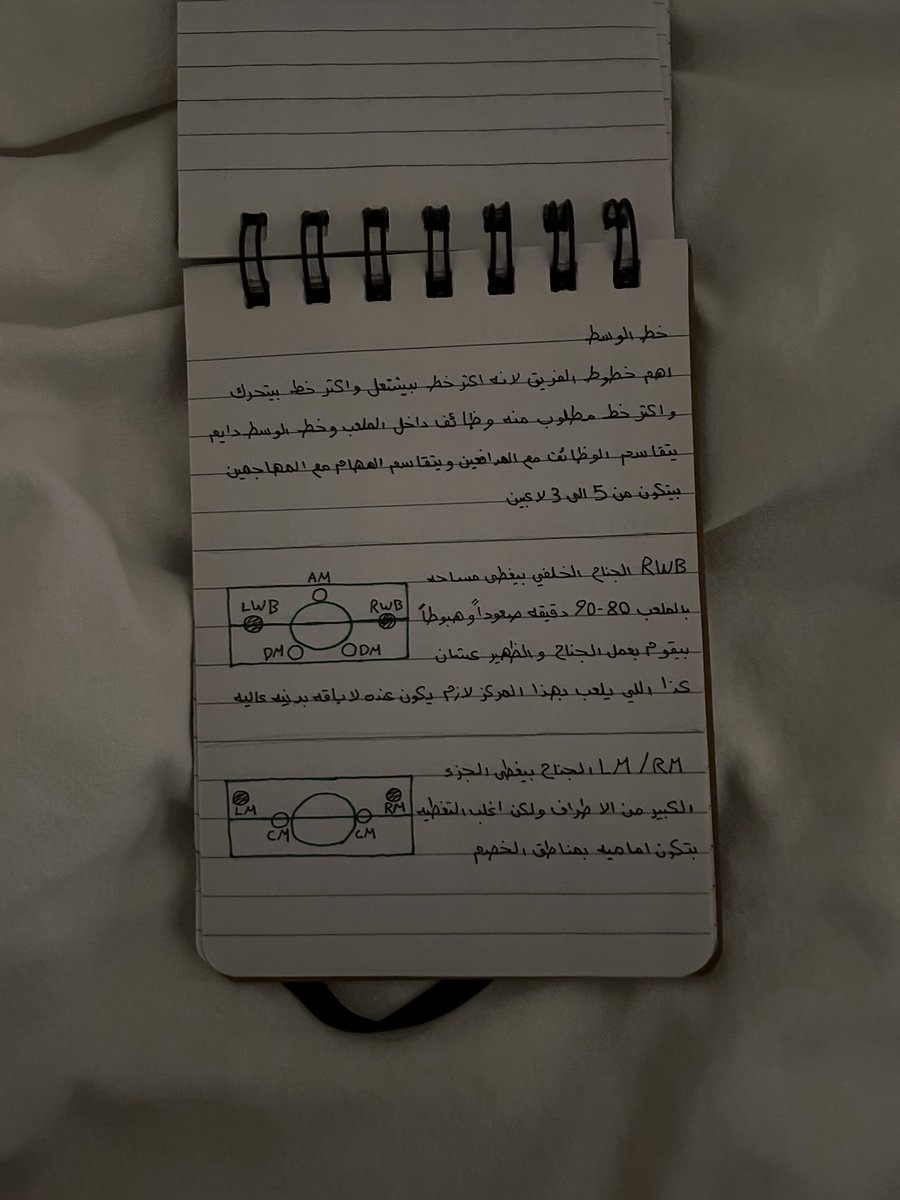 خط الوسط
اهم خطوط الفريق لانه اكثر خط بيشتغل واكثر خط بيتحرك
واكثر خط مطلوب منه وظائف داخل الملعب وخط الوسط دايم
يتقاسم الوظائف مع المدافعين ويتقاسم المهام مع المهاجمين
بيتكون من 5 الى 3 لاعبين
RWB الجناح الخلفي بيغطي مساحه
بالملعب 80-90 دقيقه صعوداً وهبوطاً
بيقوم بعمل الجناح والظهير عشان
كذا اللي يلعب بهذا المركز لازم يكون عنده لاياقه بدنيه عاليه
AM
LWB RWB
DM DM
LM/RM الجناح بيغطي الجزء
الكبير من الاطراف ولكن اغلب التغطيه
بتكون اماميه بمناطق الخصم
LM RM
CM CM